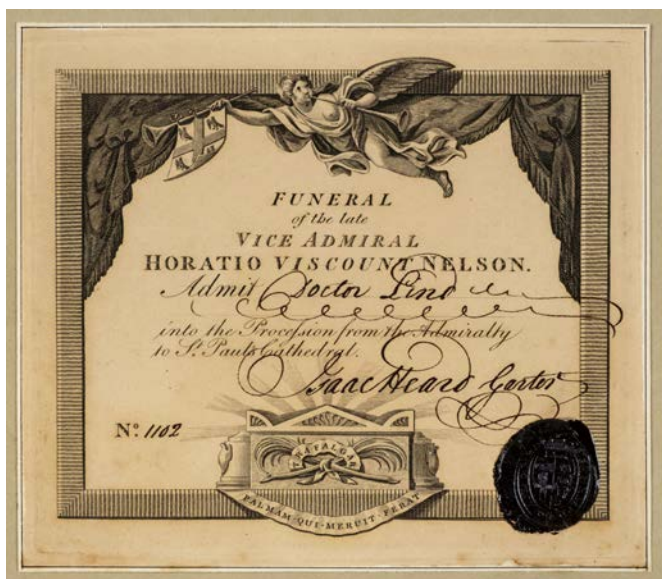 FUNERAL
of the late
VICE ADMIRAL
HORATIO VISCOUNT NELSON.
Admit Doctor Lind
into the Procession from the Admiralty
to St. Pauls Cathedral.
Isaac Heard Garter
No. 1102
TRAFALGAR
PALMAM·QUI·MERUIT·FERAT